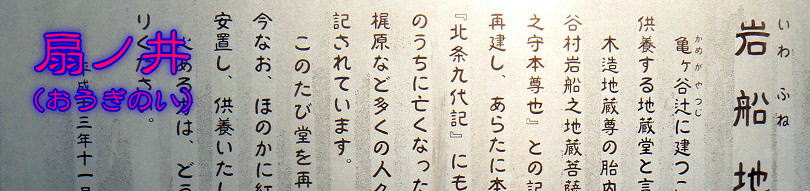 扇ノ井
(おうぎのい)
いわ ふね
岩船地
かめがやつじ
亀ヶ谷辻に建つ
供養する地蔵堂と言
木造地蔵尊の胎内
谷村岩船之地蔵菩薩
之守本尊也』との記
再建し、あらたに本
『北条九代記』にも
のうちに亡くなった
梶原など多くの人
記されています。
このたび堂を再
今なお、ほのかに紅
安置し、供養いたし
ある方は、どう
り
。
三年十一月